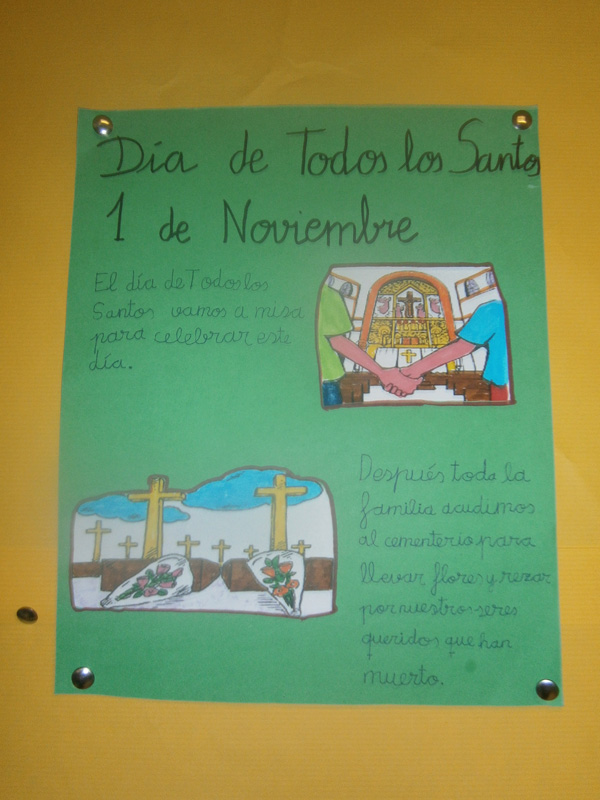 Día de Todos los Santos
1 de Noviembre
El día de Todos los
Santos vamos a misa
para celebrar este
día.
Después toda la
familia acudimos
al cementerio para
llevar flores y rezar
por nuestros seres
queridos que han
muerto.